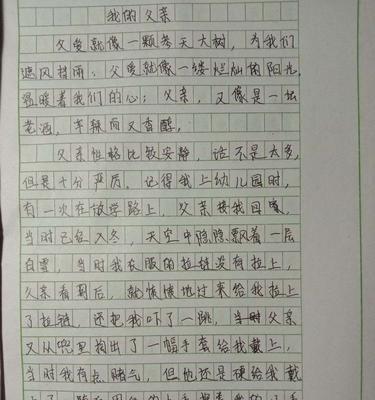 我的父亲
父爱就像一颗参天大树，为我们
遮风挡雨；父爱就像一缕灿灿的阳光，
温暖着我们的心；父亲，又像是一坛
老酒，辛辣而又香醇，
父亲性格比较安静，话不是太多，
但是十分严厉。记得我上幼儿园时，
有一次在放学路上，父亲接我回家，
当时已经入冬，天空中隐隐飘着一层
白雪，当时我衣服的拉链没有拉上，
父亲看到后，就慌慌地过来给我拉上
了拉链，还把我吓了一跳，当时父亲
又从兜里掏出了一帽手套给我戴上，
当时我有点赌气，但他还是硬给我戴